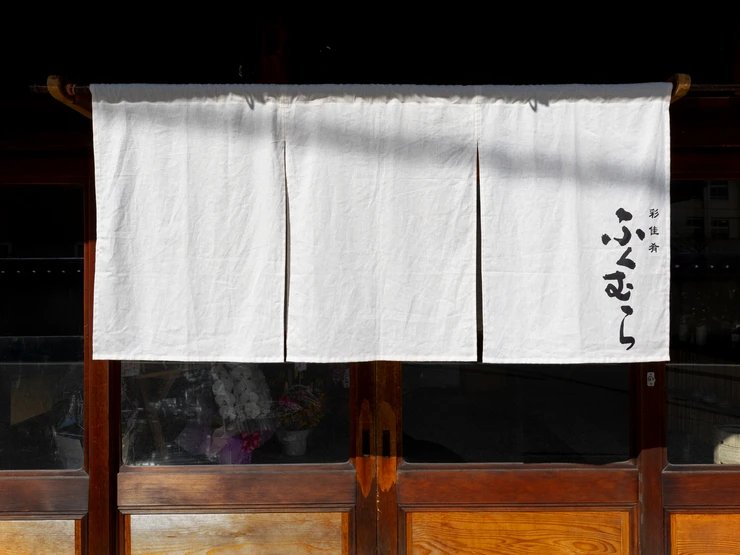 彩佳肴
ふくむら